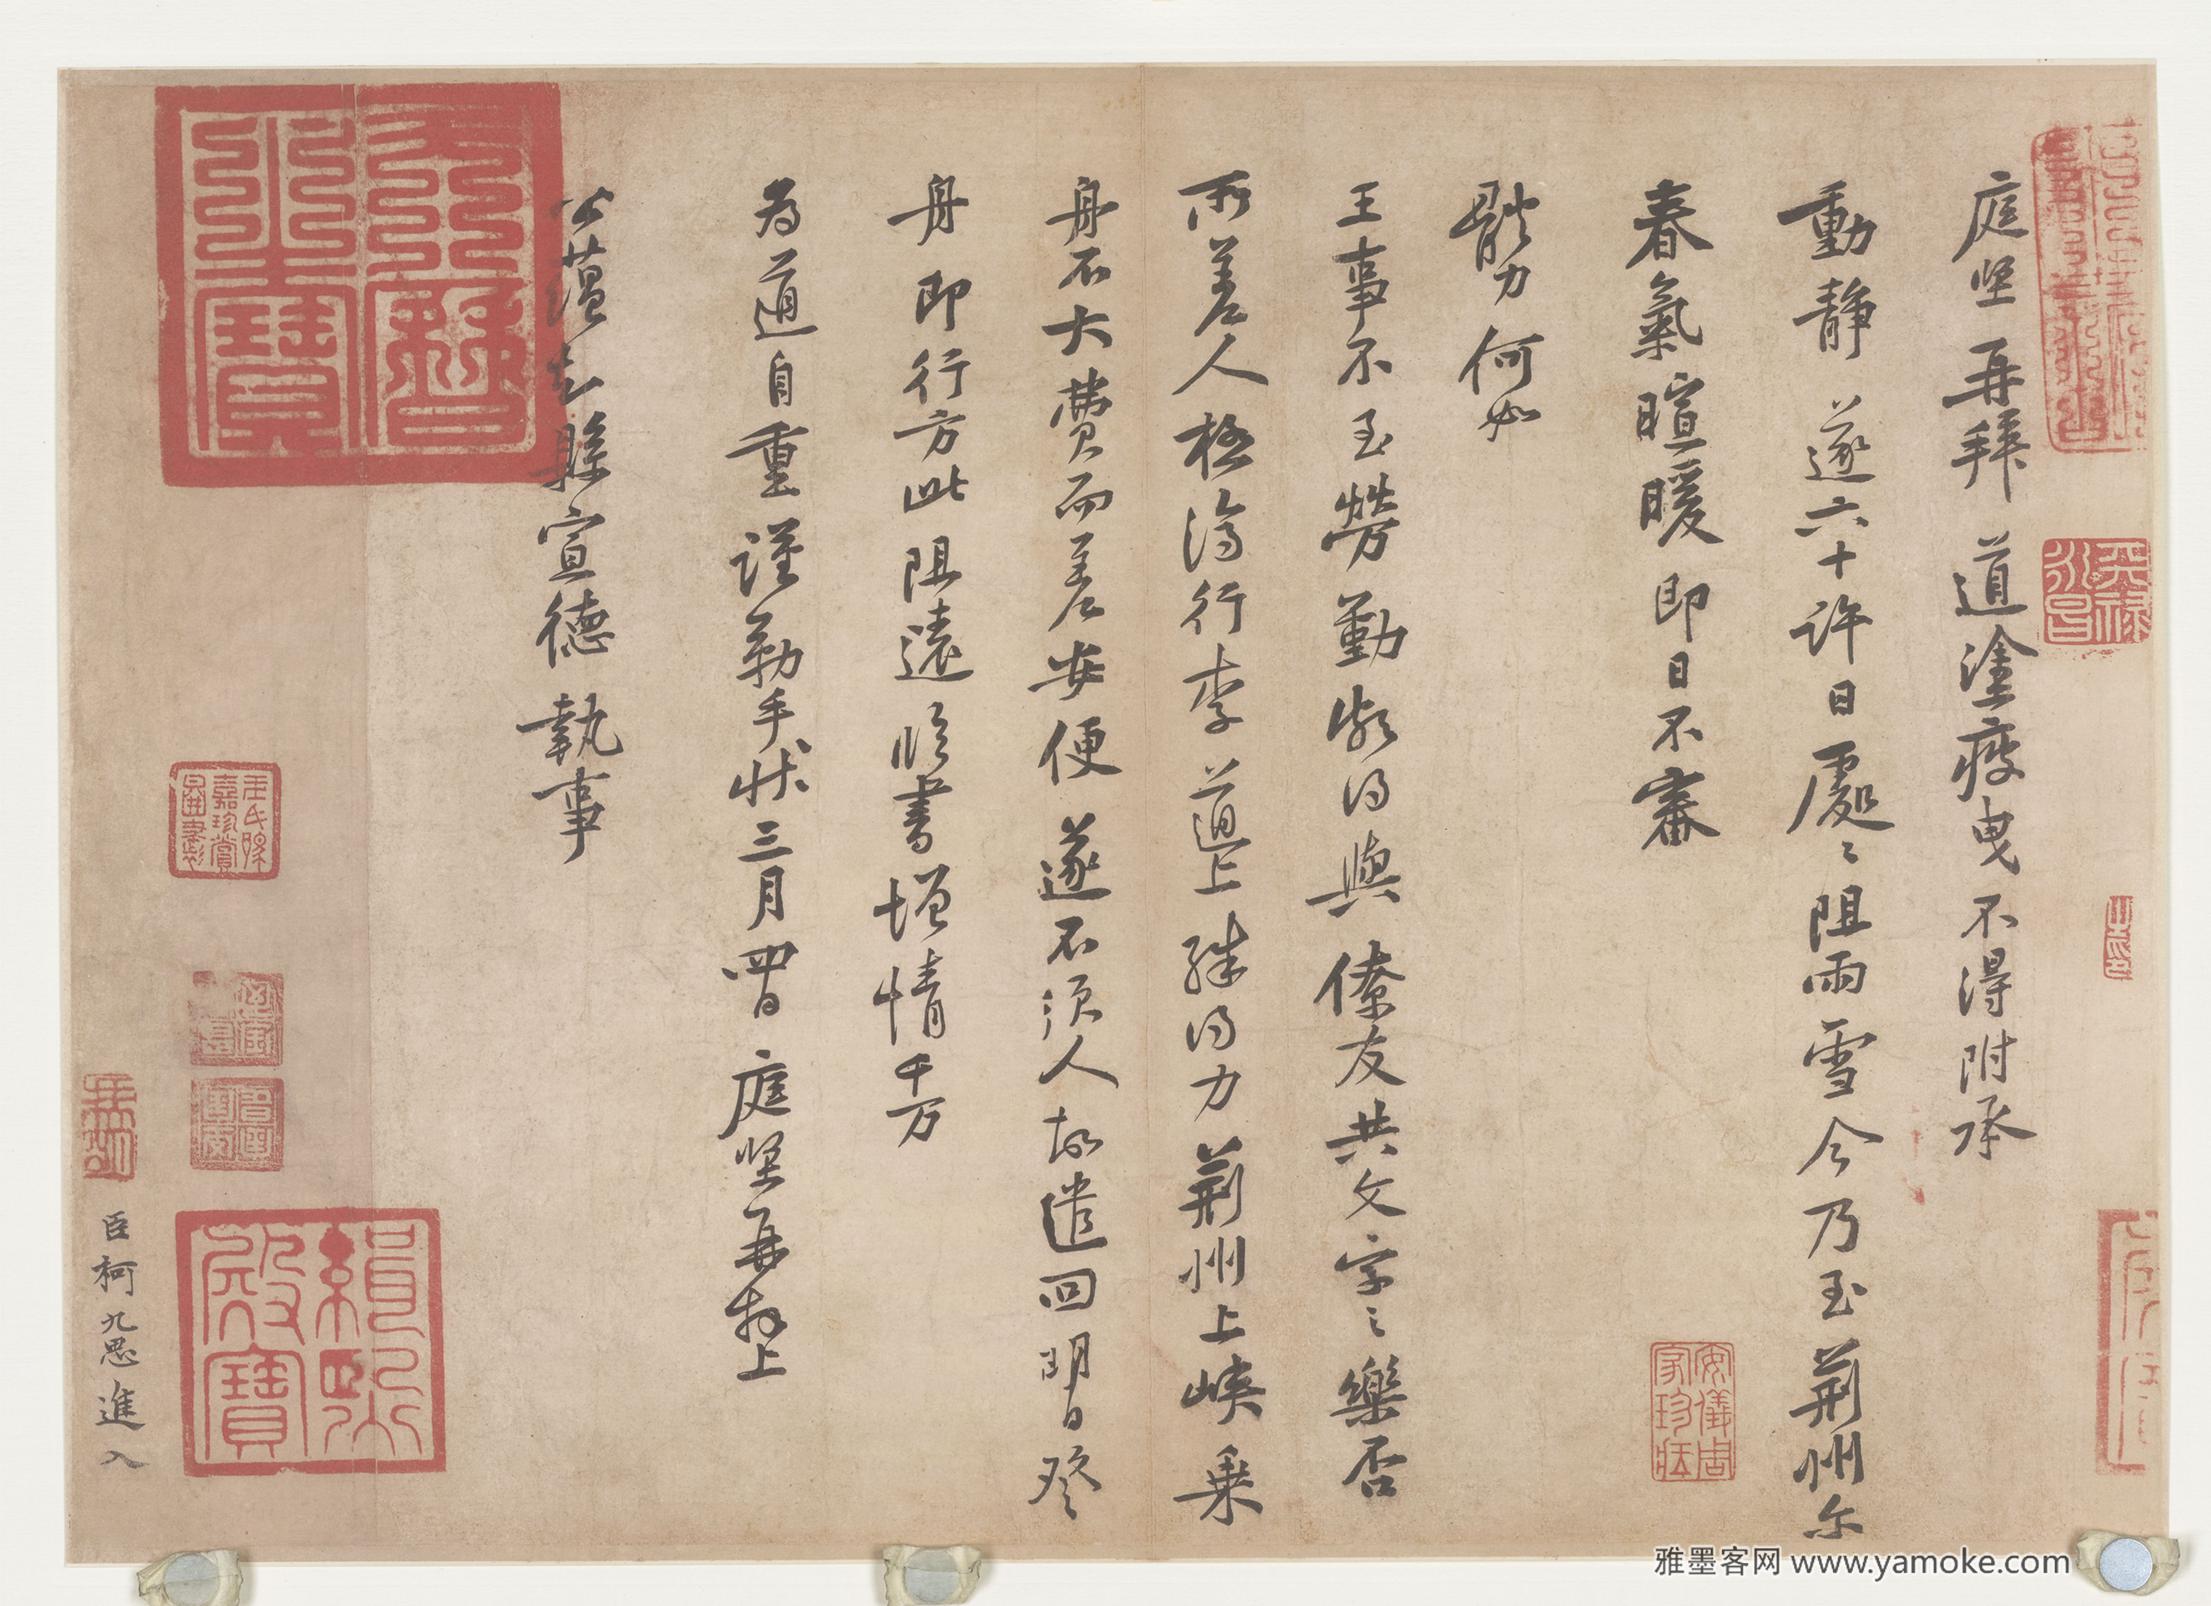 庭堅再拜道塗疲曳不得附承
動靜遂六十許日處〻阻雨雪今乃至荊州尔
春氣暄暖即日不審
體力何如
王事不至勞勤頗得與僚友共文字之樂否
所差人極濟行李道上殊得力荊州上峽乘
舟不大費而差安便遂不須人故遣回明日登
舟即行方此阻遠臨書增情千万
為道自重謹勒手狀三月四日庭堅再拜上
公蘊知縣宣德執事
臣柯九思進入
天曆之寶
緝熙殿寶
安儀周家珍藏
雅墨客网 www.yamoke.com